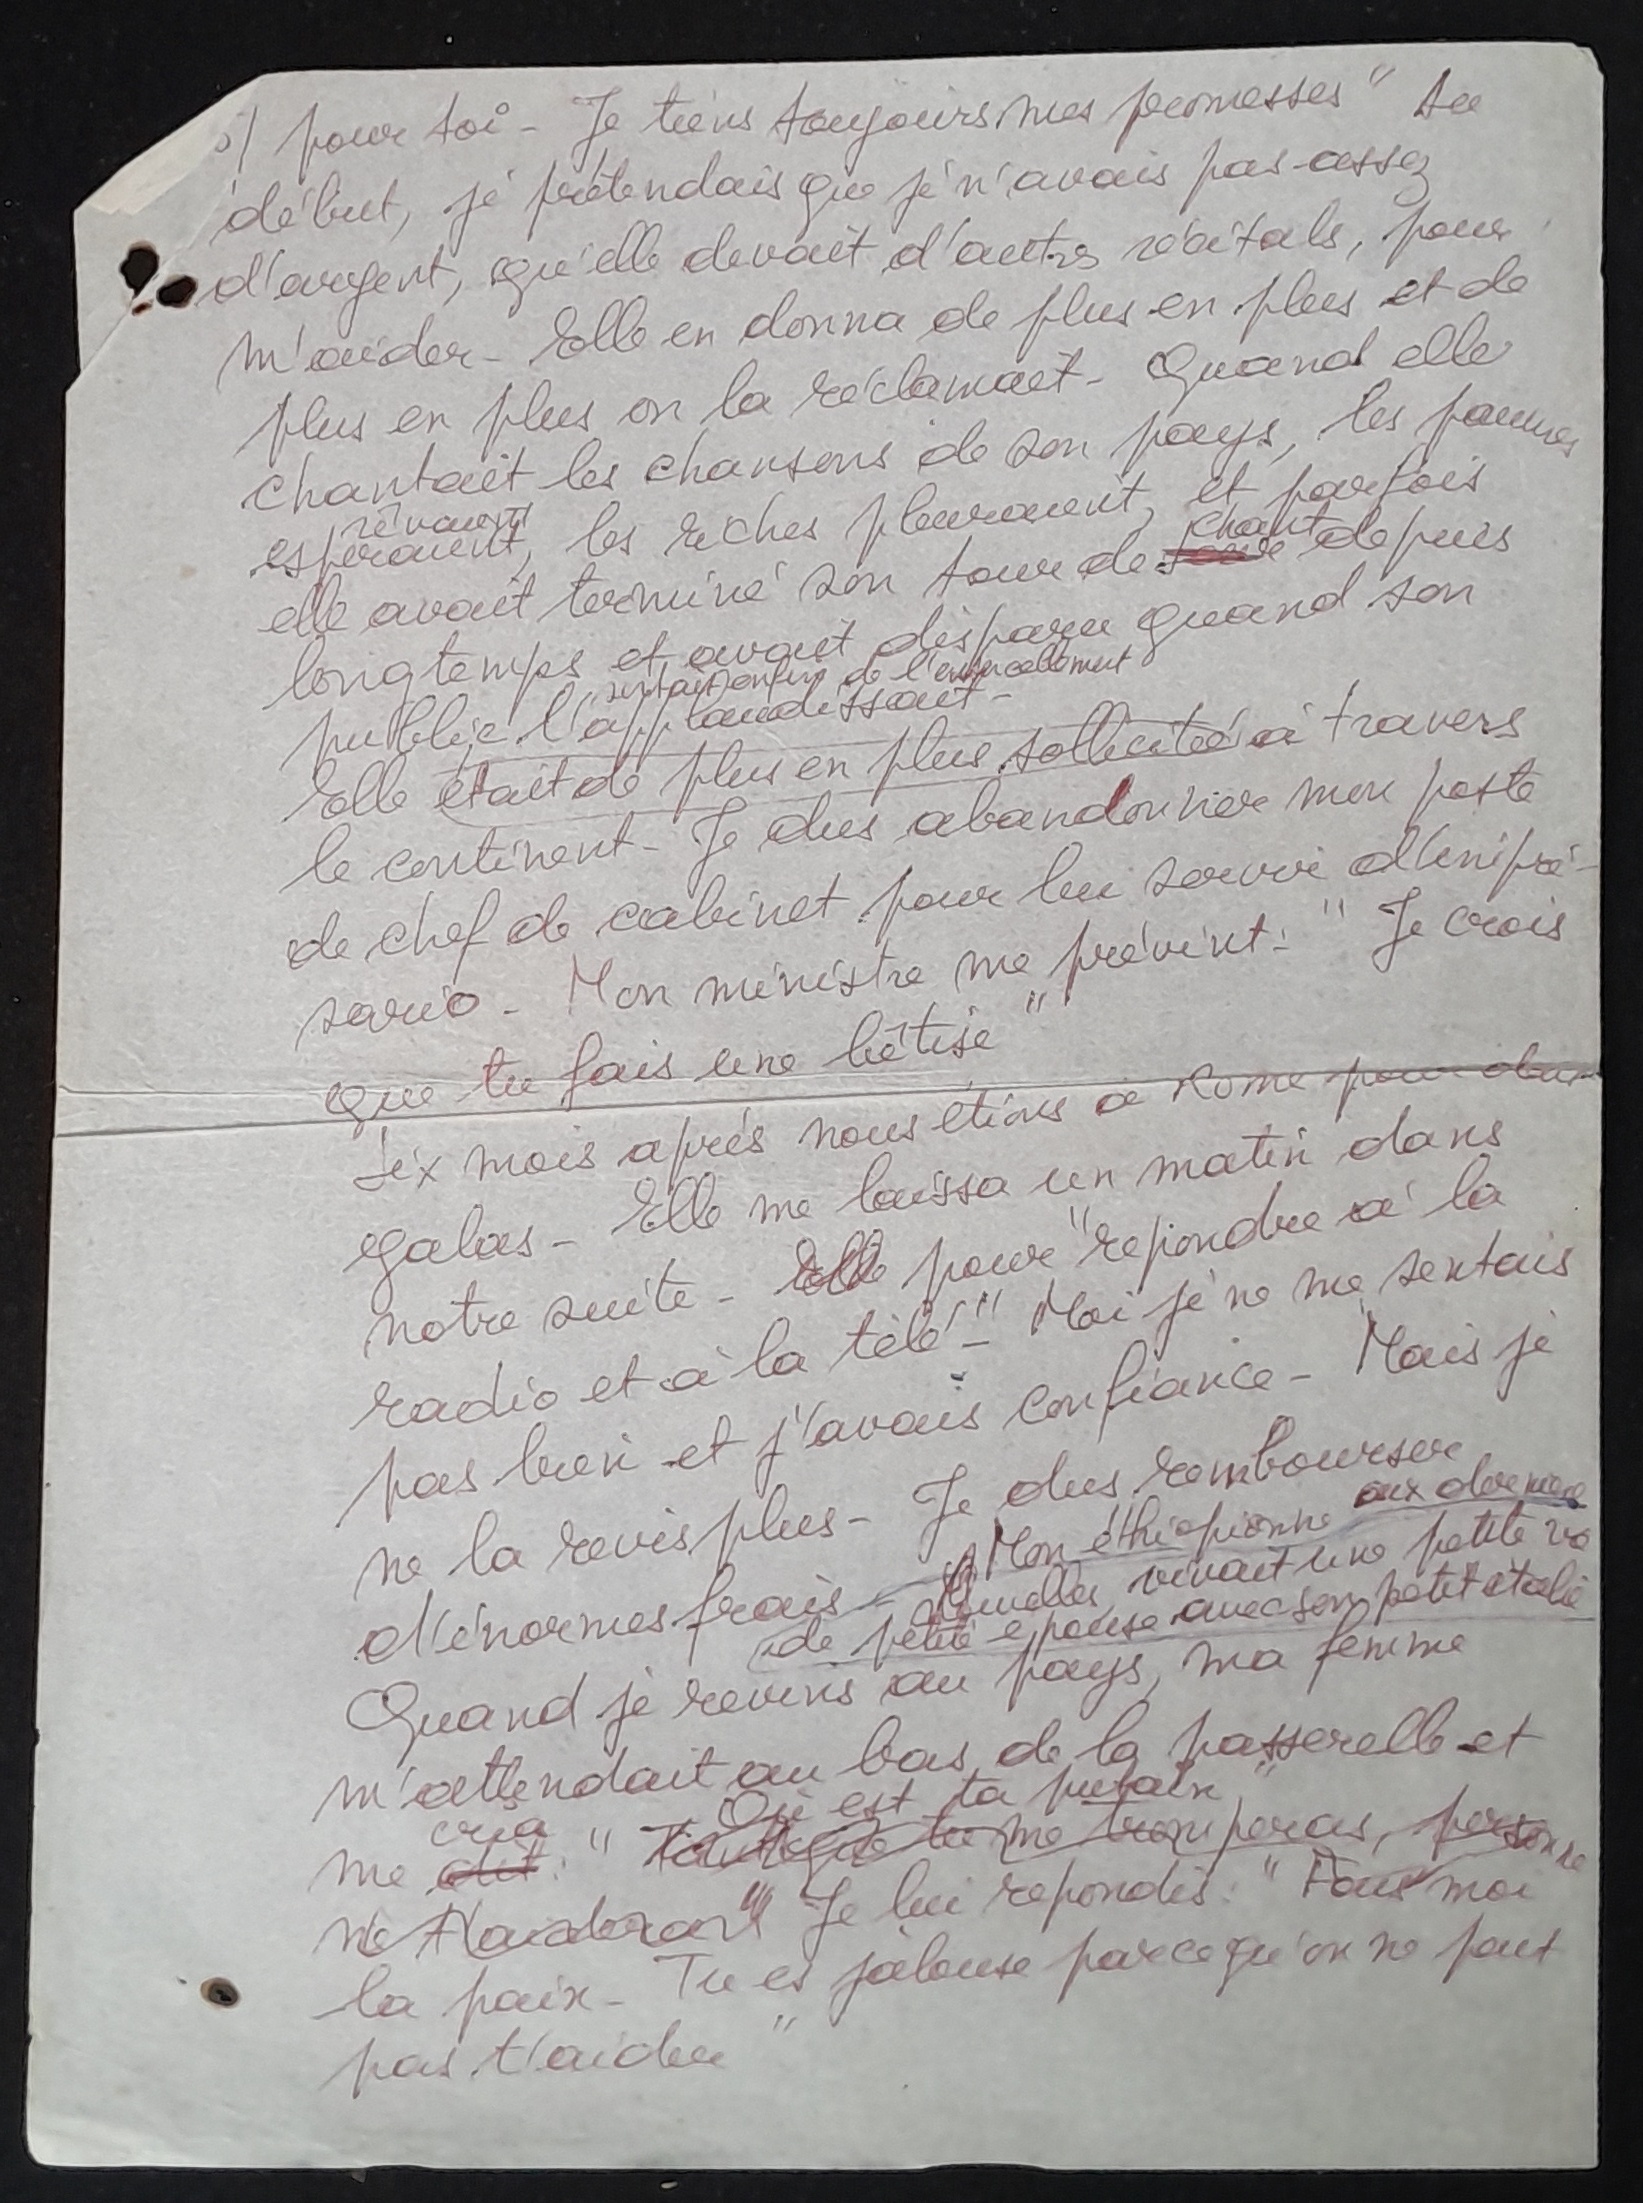 5/ pour toi - Je tiens toujours mes promesses" Au
début, je prétendais que je n'avais pas assez
d'argent, qu'elle devait d'autres récitals, pour
m'aider - Elle en donna de plus en plus et de
plus en plus on la réclamait - Quand elle
chantait les chansons de son pays, les pauvres
rêvaient
espéraient, les riches pleuraient, et parfois
chant
elle avait terminé son tour de depuis
longtemps et avait disparu quand son
de l'ensorcellement
public l'applaudissait -
Elle était de plus en plus sollicitée à travers
le continent - Je dus abandonner mon poste
de chef de cabinet pour lui servir d'impré-
sario - Mon ministre me prévint : " Je crois
que tu fais une bêtise "
Six mois après nous étions à Rome pour deux
galas - Elle me laissa un matin dans
notre suite - Elle pour "repondre à la
radio et à la télé" - Moi je ne me sentais
pas bien et j'avais confiance - Mais je
ne la revis plus - Je dus rembourser
d'énormes frais - Mon éthiopienne aux dernières
nouvelles, vivait une petite vie
de petite epouse avec son petit italie
Quand je revins au pays, ma femme
m'attendait au bas de la passerelle et
cria Où est ta putain "
me dit : " Tant que tu me tromperas, personne
ne t'aidera " Je lui repondis : " Fous moi
la paix - Tu es jalouse parce qu'on ne peut
pas t'aider "